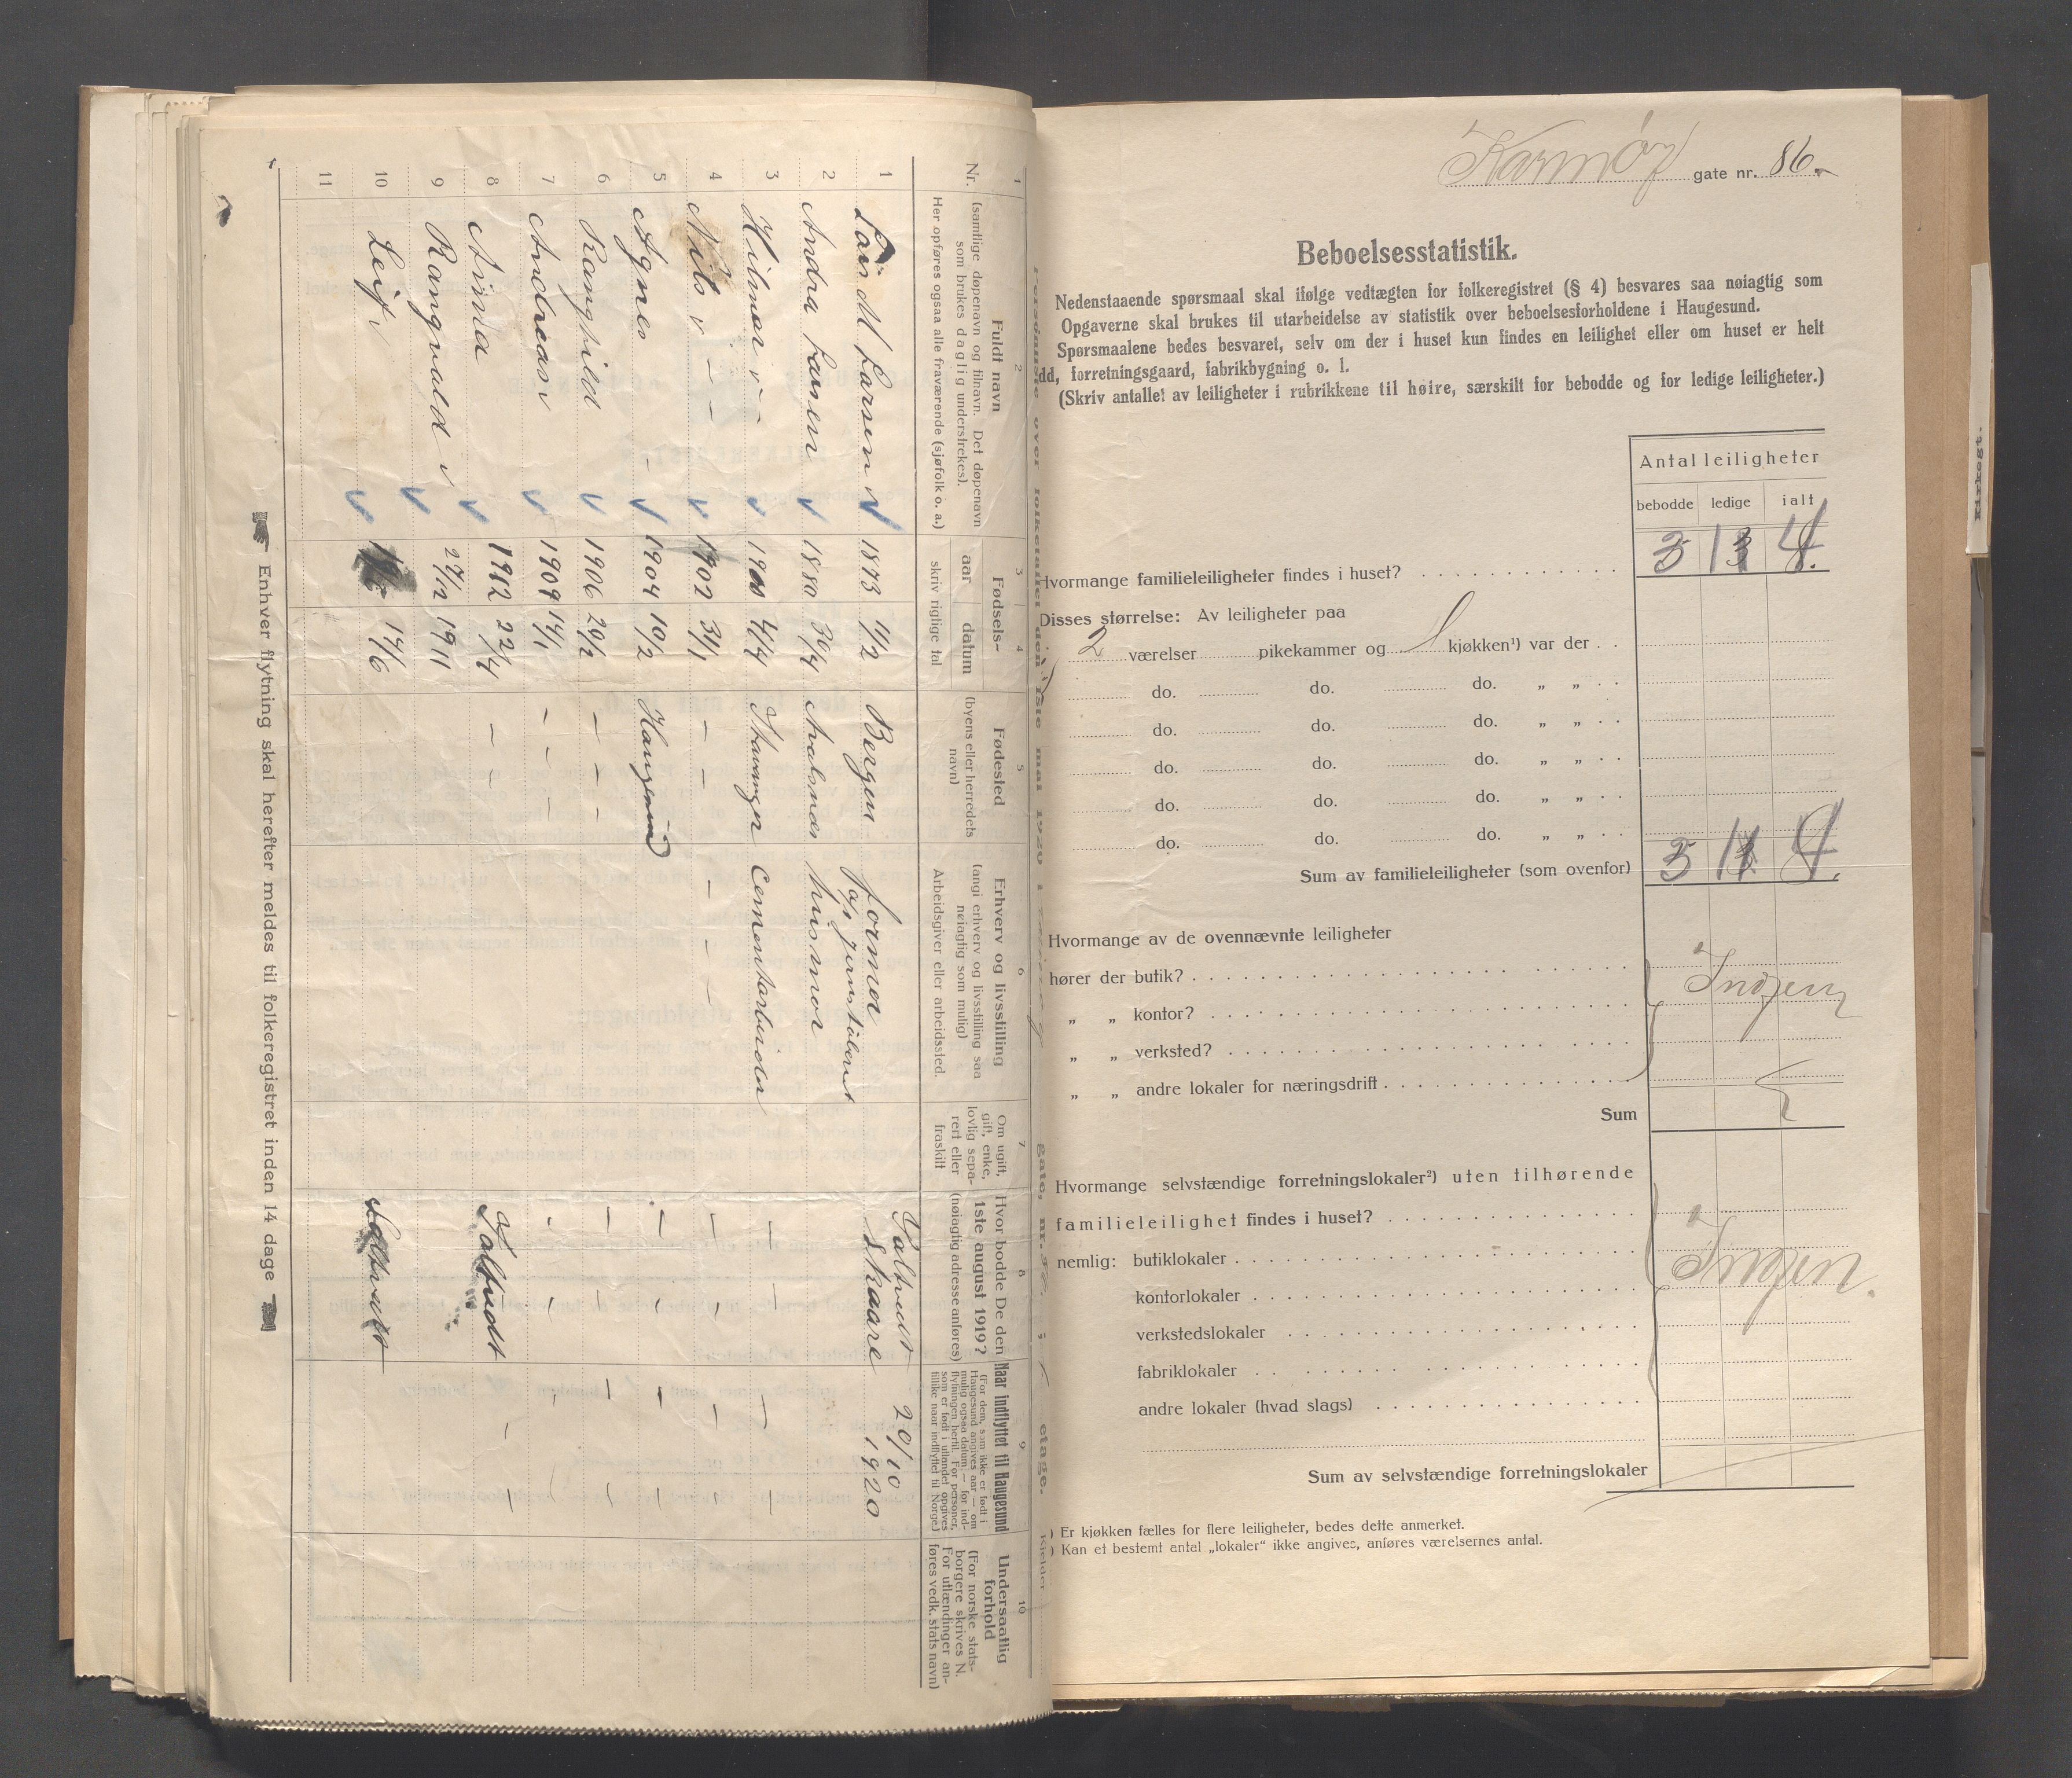 1 2 3 4 5 6 7 8 9 10
Nr.
Fuldt navn
(samtlige døpenavn og tilnavn. Det døpenavn
som brukes daglig understrekes).
Her opføres ogsaa alle fraværende (sjøfolk o. a.)
Fødsels-
aar datum
skriv rigtige tal
Fødested
(byens eller herredets
navn)
Erhverv og livsstilling
(angi erhverv og livsstilling saa
nøiagtig som mulig)
Arbeidsgiver eller arbeidssted.
Om ugift,
gift, enke,
lovlig sepa-
rert eller
fraskilt
Hvor bodde De den
1ste august 1919?
(nøiagtig adresse anføres)
Naar indflyttet til Haugesund
(For dem, som ikke er født i
Haugesund angives aar — om
mulig ogsaa datum — for ind-
flytningen hertil. For personer,
som er født i utlandet opgives
tillike naar indflyttet til Norge)
Undersaatlig
forhold
(For norske stats-
borgere skrives N.
For utlændinger an-
føres vedk. stats navn)
1 Lars M Larsen 1873 1/2 Bergen former 20/10
Skaare 1920
2 Andra Larsen 1880 30/4 Avalsnes husmor
3 Hilmar 1900 4/4 Stavanger Cementarbeider
4 Nils 1902 31/1
5 Agnes 1904 10/2 Haugesund
6 Ranghild 1906 20/2
7 Andreas 1909 14/1
8 1912 22/4
9 Rangvald 27/12 1911
10 Leif 17/6
11
Enhver flytning skal herefter meldes til folkeregistret inden 14 dage
Karmøy gate nr. 86.
Beboelsesstatistik.
Nedenstaaende spørsmaal skal ifølge vedtægten for folkeregistret (§ 4) besvares saa nøiagtig som
Opgaverne skal brukes til utarbeidelse av statistik over beboelsesforholdene i Haugesund.
Spørsmaalene bedes besvaret, selv om der i huset kun findes en leilighet eller om huset er helt
dd, forretningsgaard, fabrikbygning o. l.
(Skriv antallet av leiligheter i rubrikkene til høire, særskilt for bebodde og for ledige leiligheter.)
Antal leiligheter
bebodde ledige ialt
Hvormange familieleiligheter findes i huset? 3 1 4.
Disses størrelse: Av leiligheter paa
2 værelser pikekammer og 1 kjøkken¹) var der
do. do. do. „ „
do. do. do. „ „
do. do. do. „ „
do. do. do. „ „
do. do. do. „ „
Sum av familieleiligheter (som ovenfor) 3 1 4.
Hvormange av de ovennævnte leiligheter
hører der butik? Ingen
„ „ kontor?
„ „ verksted?
„ „ andre lokaler for næringsdrift
Sum
Hvormange selvstændige forretningslokaler²) uten tilhørende
familieleilighet findes i huset?
nemlig: butiklokaler Ingen.
kontorlokaler
verkstedslokaler
fabriklokaler
andre lokaler (hvad slags)
Sum av selvstændige forretningslokaler
) Er kjøkken fælles for flere leiligheter, bedes dette anmerket.
) Kan et bestemt antal „lokaler“ ikke angives, anføres værelsernes antal.
Kirkegt.